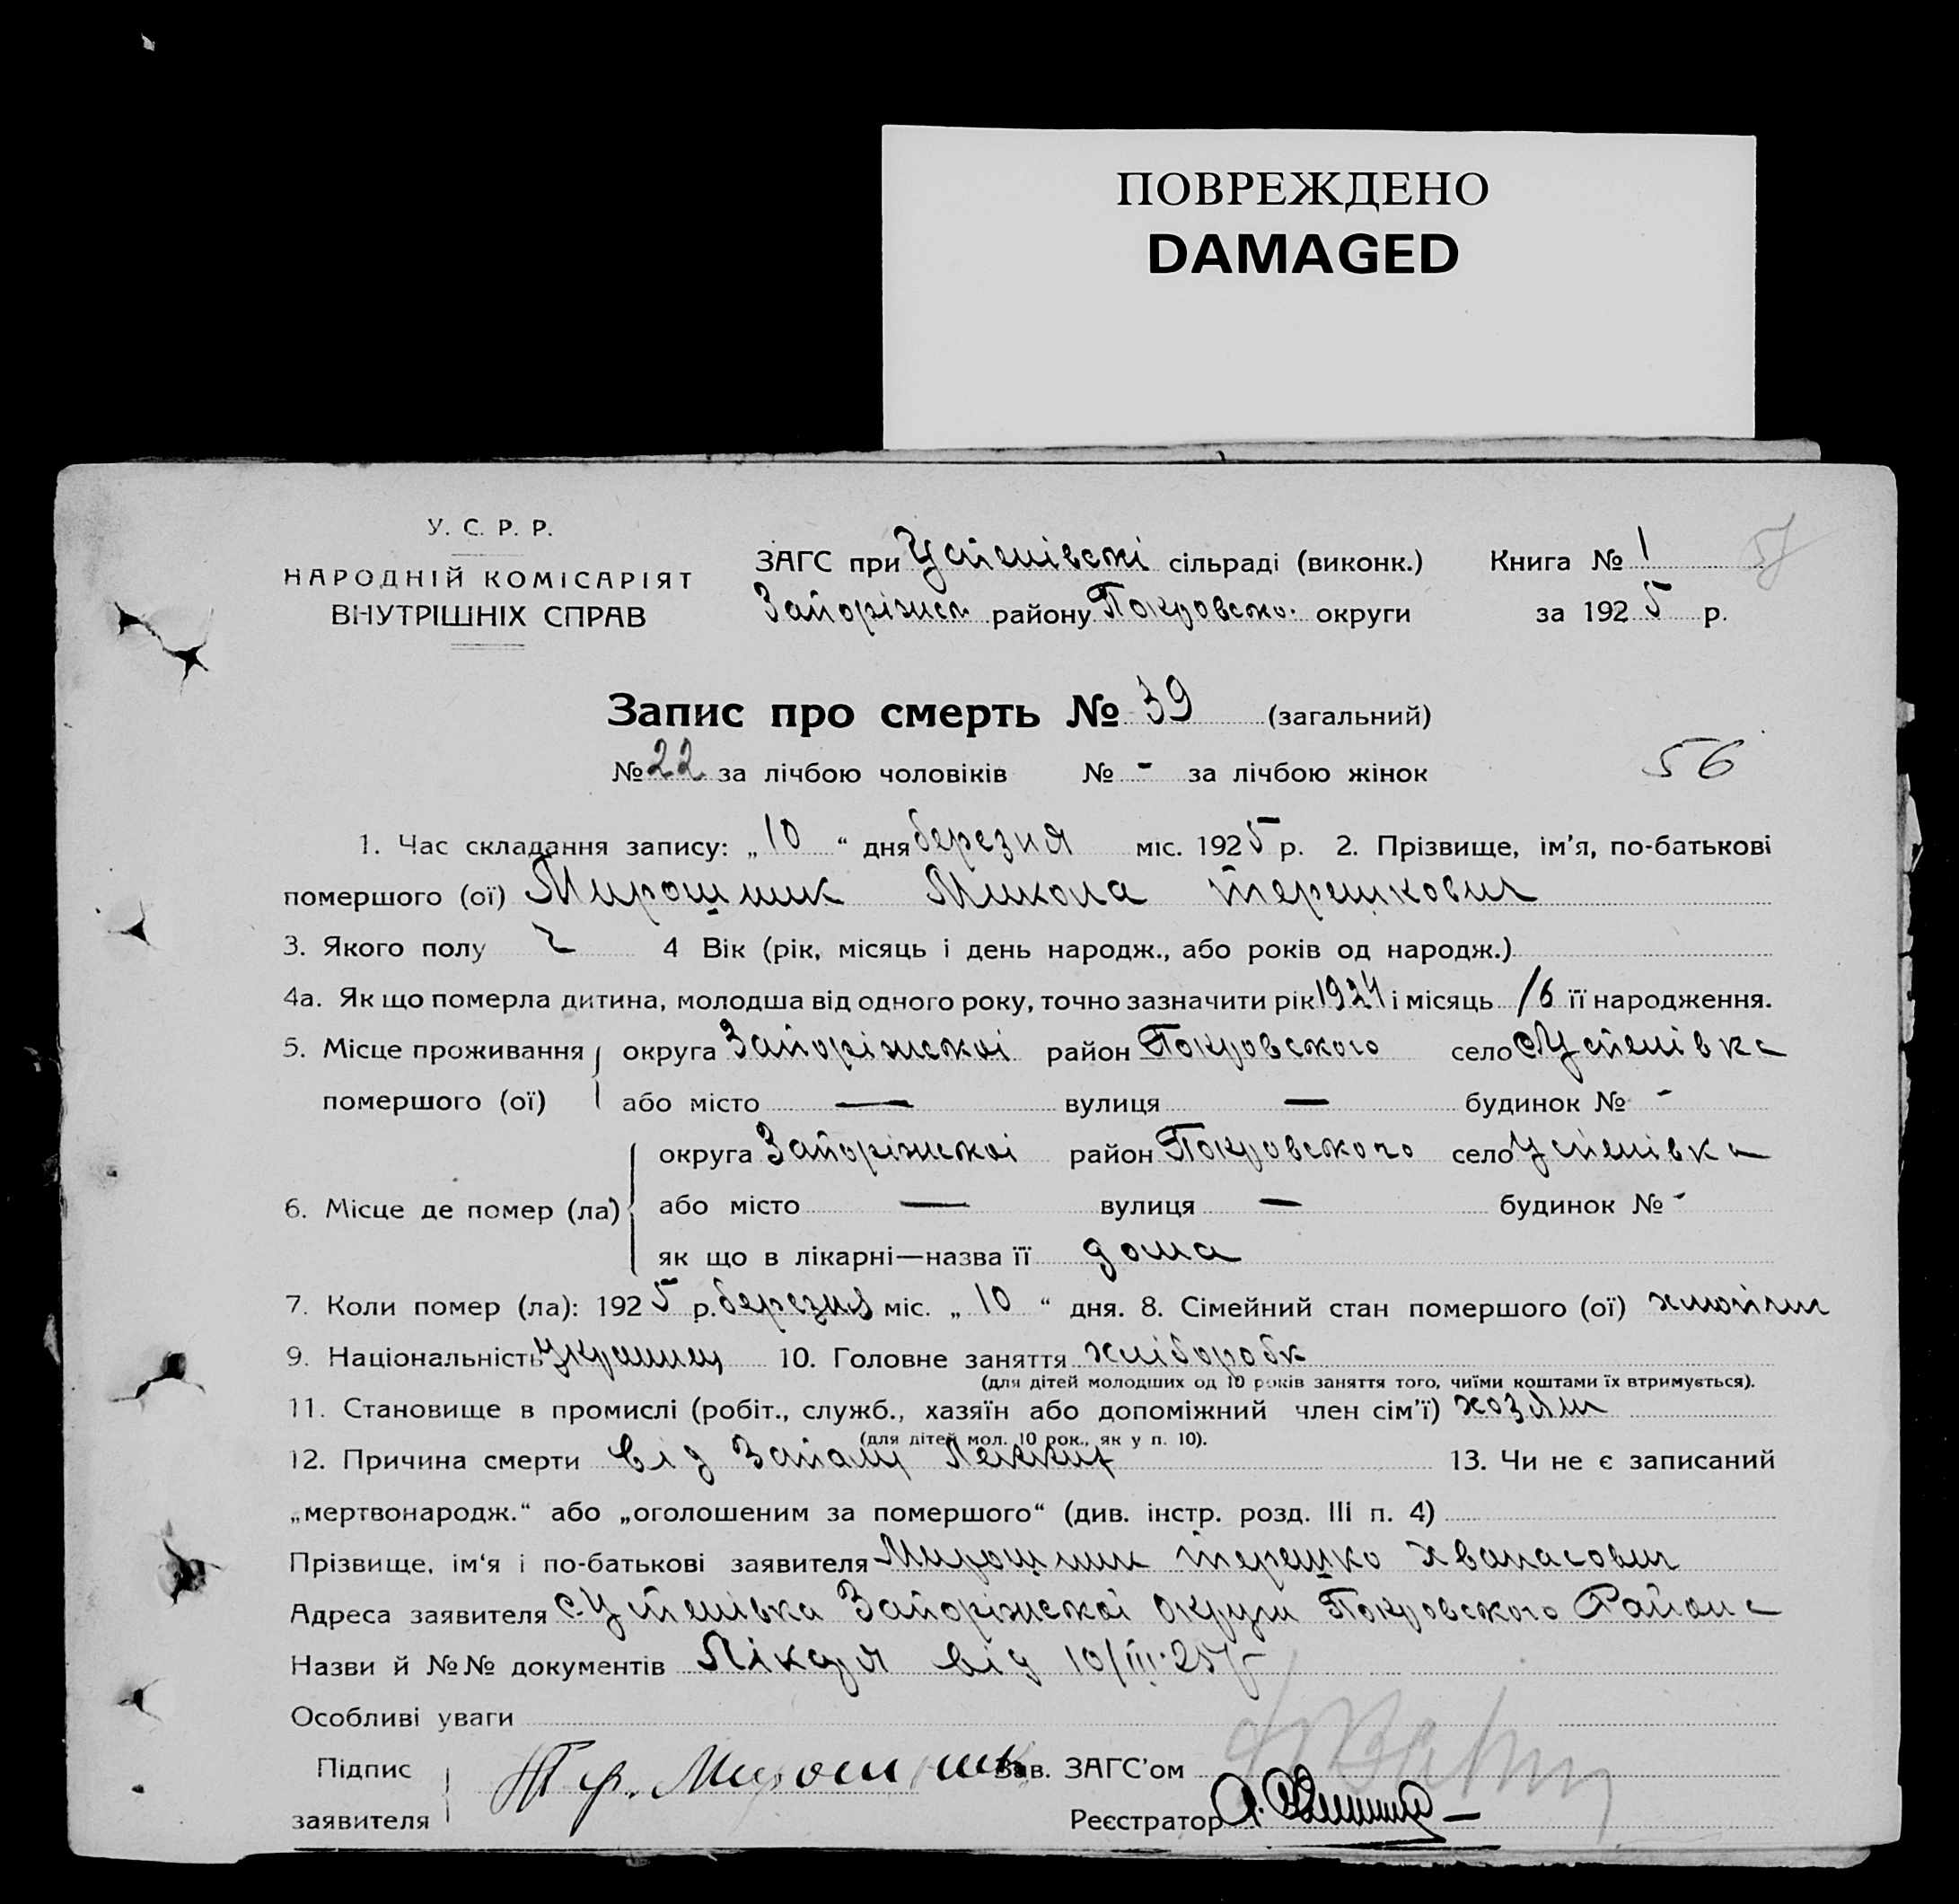 ПОВРЕЖДЕНО
DAMAGED
У. С. Р. Р.
НАРОДНІЙ КОМІСАРІЯТ
ВНУТРІШНІХ СПРАВ
ЗАГС при Успенівскі сільраді (виконк.) Книга № 1
Запоріжск районуПокровско. округи за 1925 р.
Запис про смерть № 39 (загальний)
№ 22 за лічбою чоловіків № - за лічбою жінок
56
1. Час складання запису: „10“ дня березня міс. 1925 р. 2. Прізвище, ім'я, по-батькові
помершого (ої) Мирошник Микола Терешкович
3. Якого полу ч 4 Вік (рік, місяць і день народж., або років од народж.)
4а. Як що померла дитина, молодша від одного року, точно зазначити рік 1924 і місяць /6 її народження.
5. Місце проживання округа Запоріжскоі район Покровского село Успенівка
помершого (ої) або місто — вулиця — будинок № -
6. Місце де помер (ла) округа Запоріжскоі район Покровского село Успенівка
або місто — вулиця — будинок № -
як що в лікарні—назва її дома
7. Коли помер (ла): 1925 р. березня міс. „10“ дня. 8. Сімейний стан помершого (ої)
9. Національність Украинец 10. Головне заняття хлібороба
(для дітей молодших од 10 років заняття того, чиїми коштами їх втримується).
11. Становище в промислі (робіт., служб., хазяїн або допоміжний член сім'ї) хозяин
(для дітей мол. 10 рок., як у п. 10).
12. Причина смерти Від Запалу Легких 13. Чи не є записаний
„мертвонародж.“ або „оголошеним за помершого“ (див. інстр. розд. III п. 4)
Прізвище, ім'я і по-батькові заявителя Мирошник Терешко Хванасович
Адреса заявителя с. Успенівка Запоріжскоі Округи Покровского Района
Назви й №№ документів Лікаря від 10/III-25 р
Особливі уваги
Підпис Мирошник Зав. ЗАГС'ом
заявителя Реєстратор